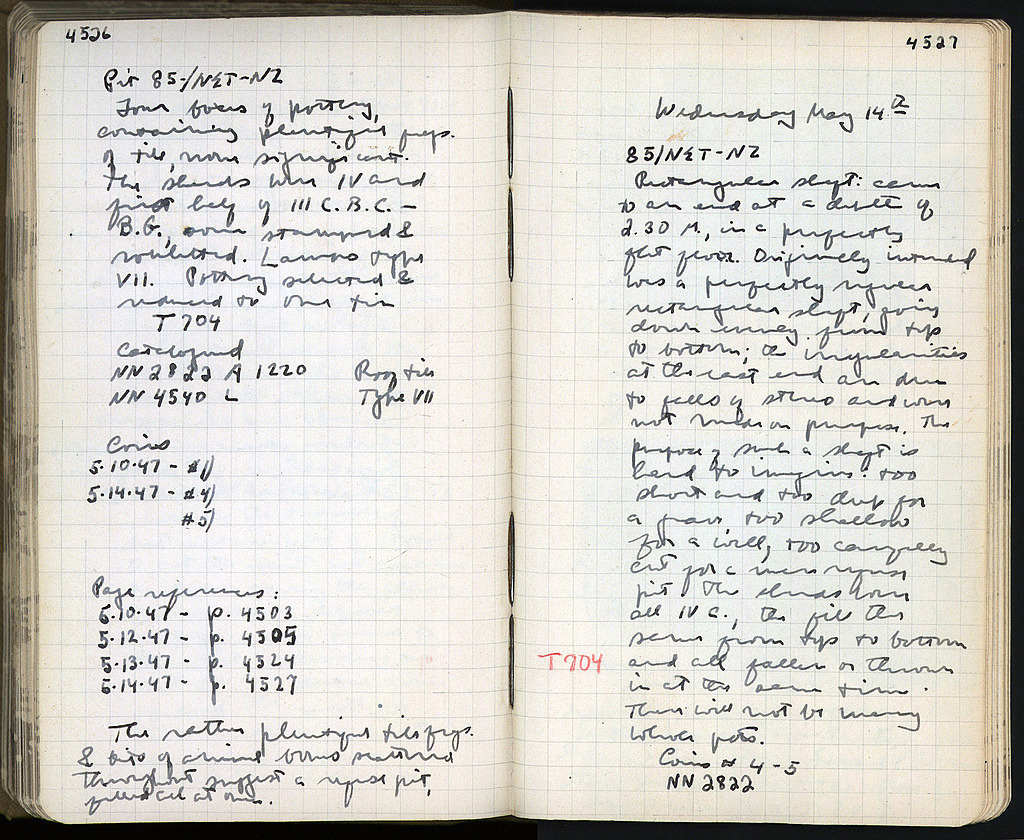 4526
Pit 85/NΣT-NZ
Four boxes of pottery,
containing plentiful frags.
of tile, none significant.
The sherds were IV and
first half of III C. B.C. —
B.G., some stamped &
rouletted. Lamps type
VII. Pottery selected &
reduced to one tin
T 704
Catalogued
NN 2822 A 1220 Roof tile
NN 4540 L Type VII
Coins
5.10.47 - #1)
5.14.47 - #4)
#5)
Page references:
5.10.47 - p. 4503
5.12.47 - p. 4505
5.13.47 - p. 4524
5.14.47 - p. 4527
The rather plentiful tile frags.
& bits of animal bones scattered
throughout suggest a refuse pit,
filled all at once.
4527
Wednesday May 14th
85/NΣT-NZ
Rectangular shaft: came
to an end at a depth of
2.30 M., in a perfectly
flat floor. Originally intended
was a perfectly regular
rectangular shaft, going
down evenly from top
to bottom; the irregularities
at the east end are due
to falls of stereo and were
not made on purpose. The
purpose of such a shaft is
hard to imagine: too
short and too deep for
a grave, too shallow
for a well, too carefully
cut for a mere refuse
pit. The sherds were
all IV C., the fill the
same from top to bottom
T 704 and all fallen or thrown
in at the same time.
There will not be many
whole pots.
Coins # 4-5
NN 2822